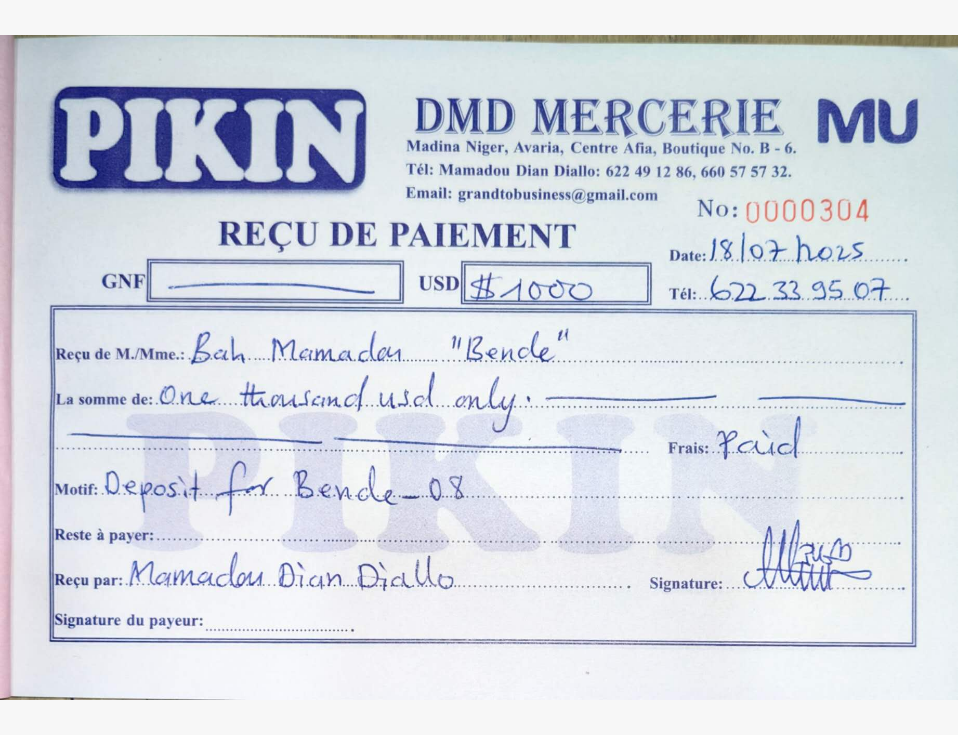 PIKIN
DMD MERCERIE MU
Madina Niger, Avaria, Centre Afia, Boutique No. B - 6.
Tél: Mamadou Dian Diallo: 622 49 12 86, 660 57 57 32.
Email: grandtobusiness@gmail.com
No: 0000304
REÇU DE PAIEMENT
Date: 18/07/2025
GNF USD $1000
Tél: 622 33 95 07
Reçu de M./Mme.: Bah Mamadou "Bende"
La somme de: One thousand usd only.
Frais: Paid
PIKIN
Motif: Deposit for Bende-08
Reste à payer:
Reçu par: Mamadou Dian Diallo Signature:
Signature du payeur: